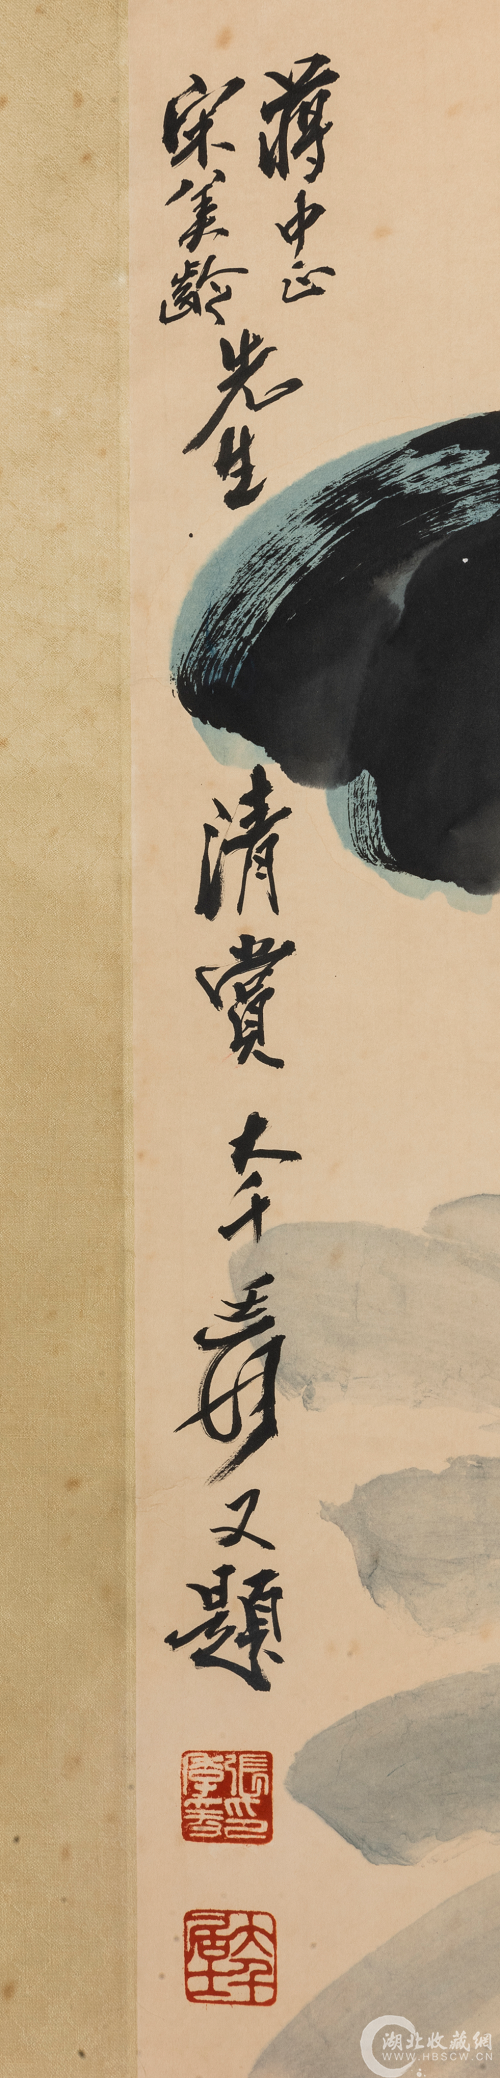 蒋中正
宋美龄
先生
清赏
大千爰又题
張爰印
大千居士
湖北收藏網
WWW.HBSCW.CN